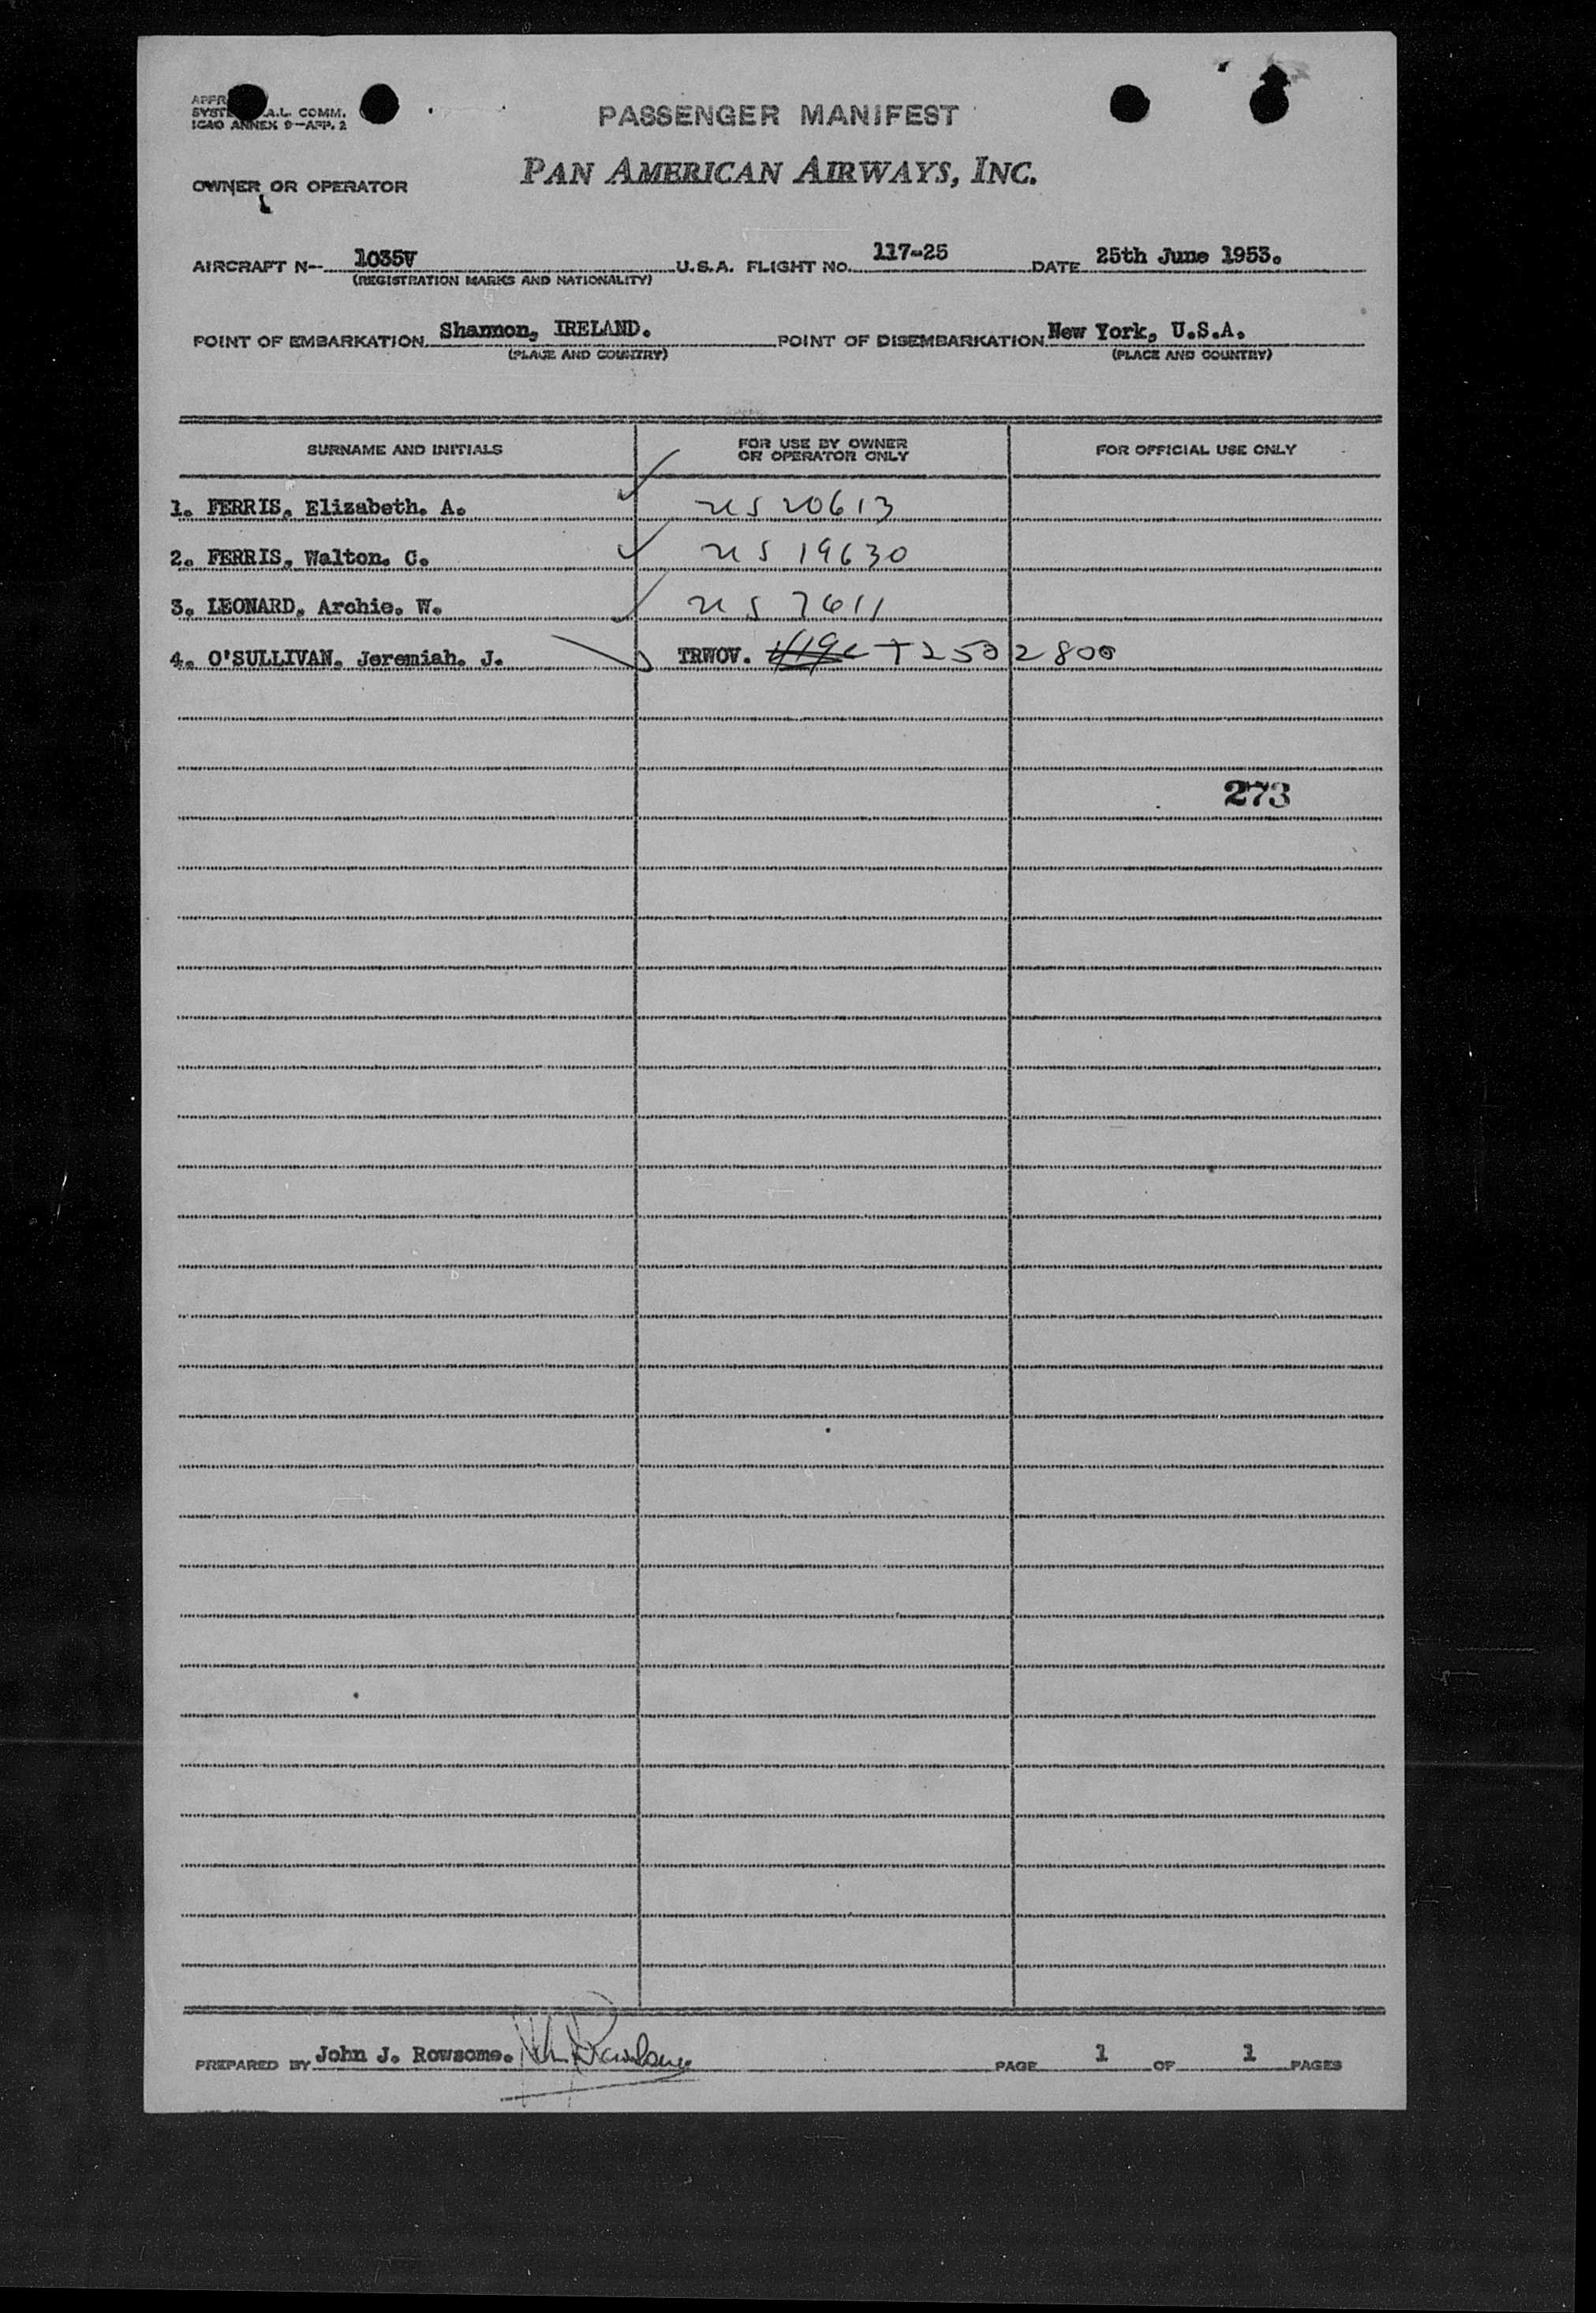 PASSENGER MANIFEST
A.L. COMM.
ICAO ANNEX 9—APP. 2
PAN AMERICAN AIRWAYS, INC.
OWNER OR OPERATOR
AIRCRAFT N-- 1035V U.S.A. FLIGHT NO. 117-25 DATE 25th June 1953.
(REGISTRATION MARKS AND NATIONALITY)
POINT OF EMBARKATION Shannon, IRELAND. POINT OF DISEMBARKATION New York, U.S.A.
(PLACE AND COUNTRY) (PLACE AND COUNTRY)
SURNAME AND INITIALS FOR USE BY OWNER OR OPERATOR ONLY FOR OFFICIAL USE ONLY
1. FERRIS. Elizabeth. A. US 20613
2. FERRIS. Walton. C. US 19630
3. LEONARD. Archie. W. US 7611
4. O'SULLIVAN. Jeremiah. J. TRWOV. T2502800
273
PREPARED BY John J. Rowsome. PAGE 1 OF 1 PAGES